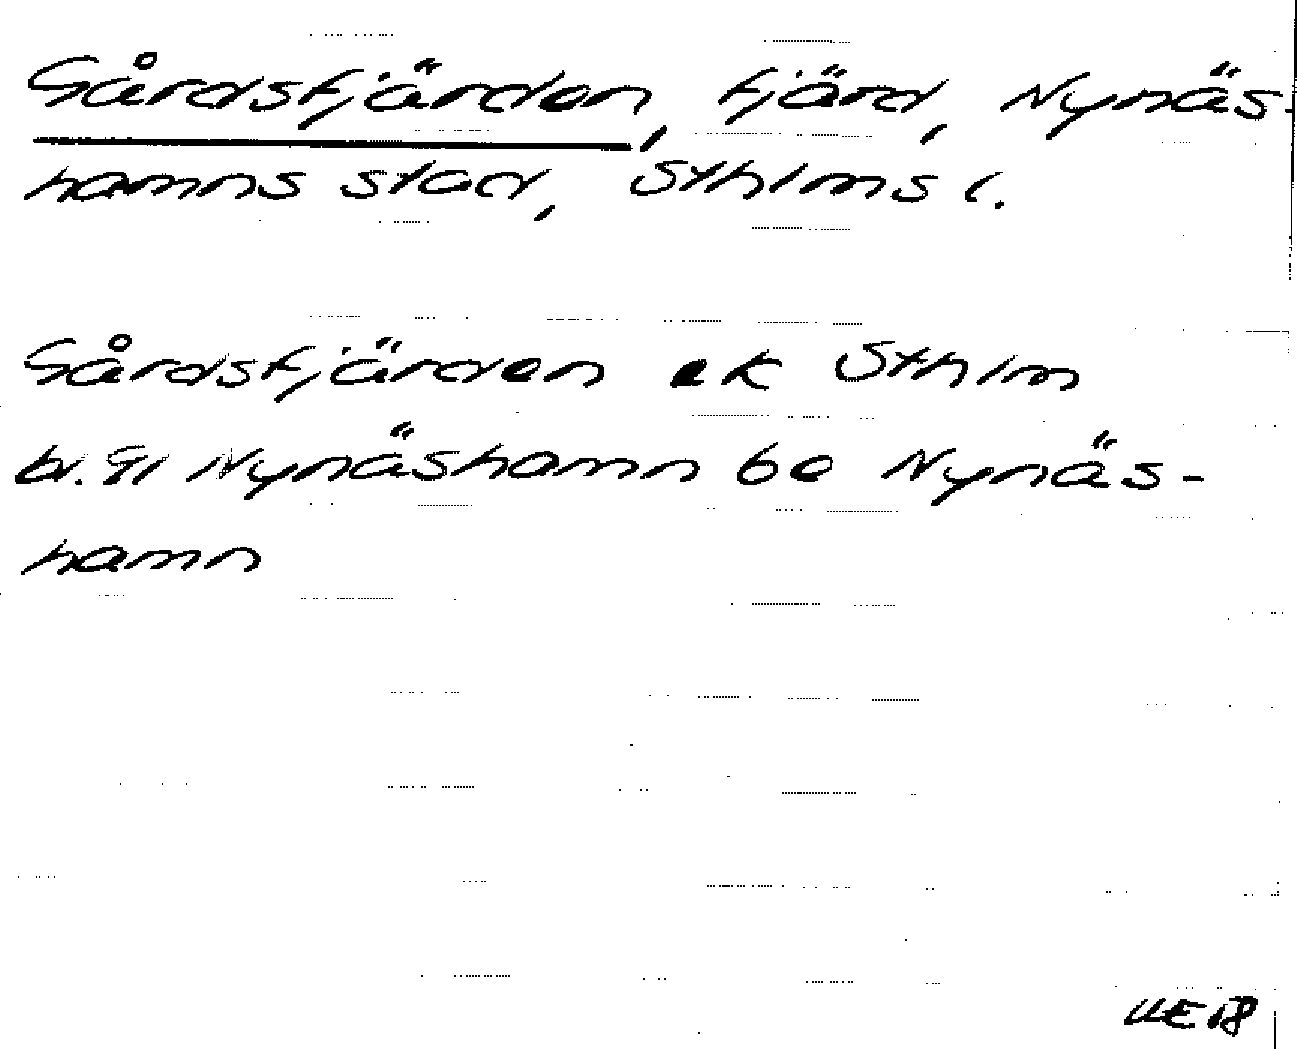 Gårdsfjärden, fjärd, Nynäs-
hamns stad, Sthlms l.
Gårdsfjärden ek Sthlm
bl. 91 Nynäshamn bo Nynäs-
hamn